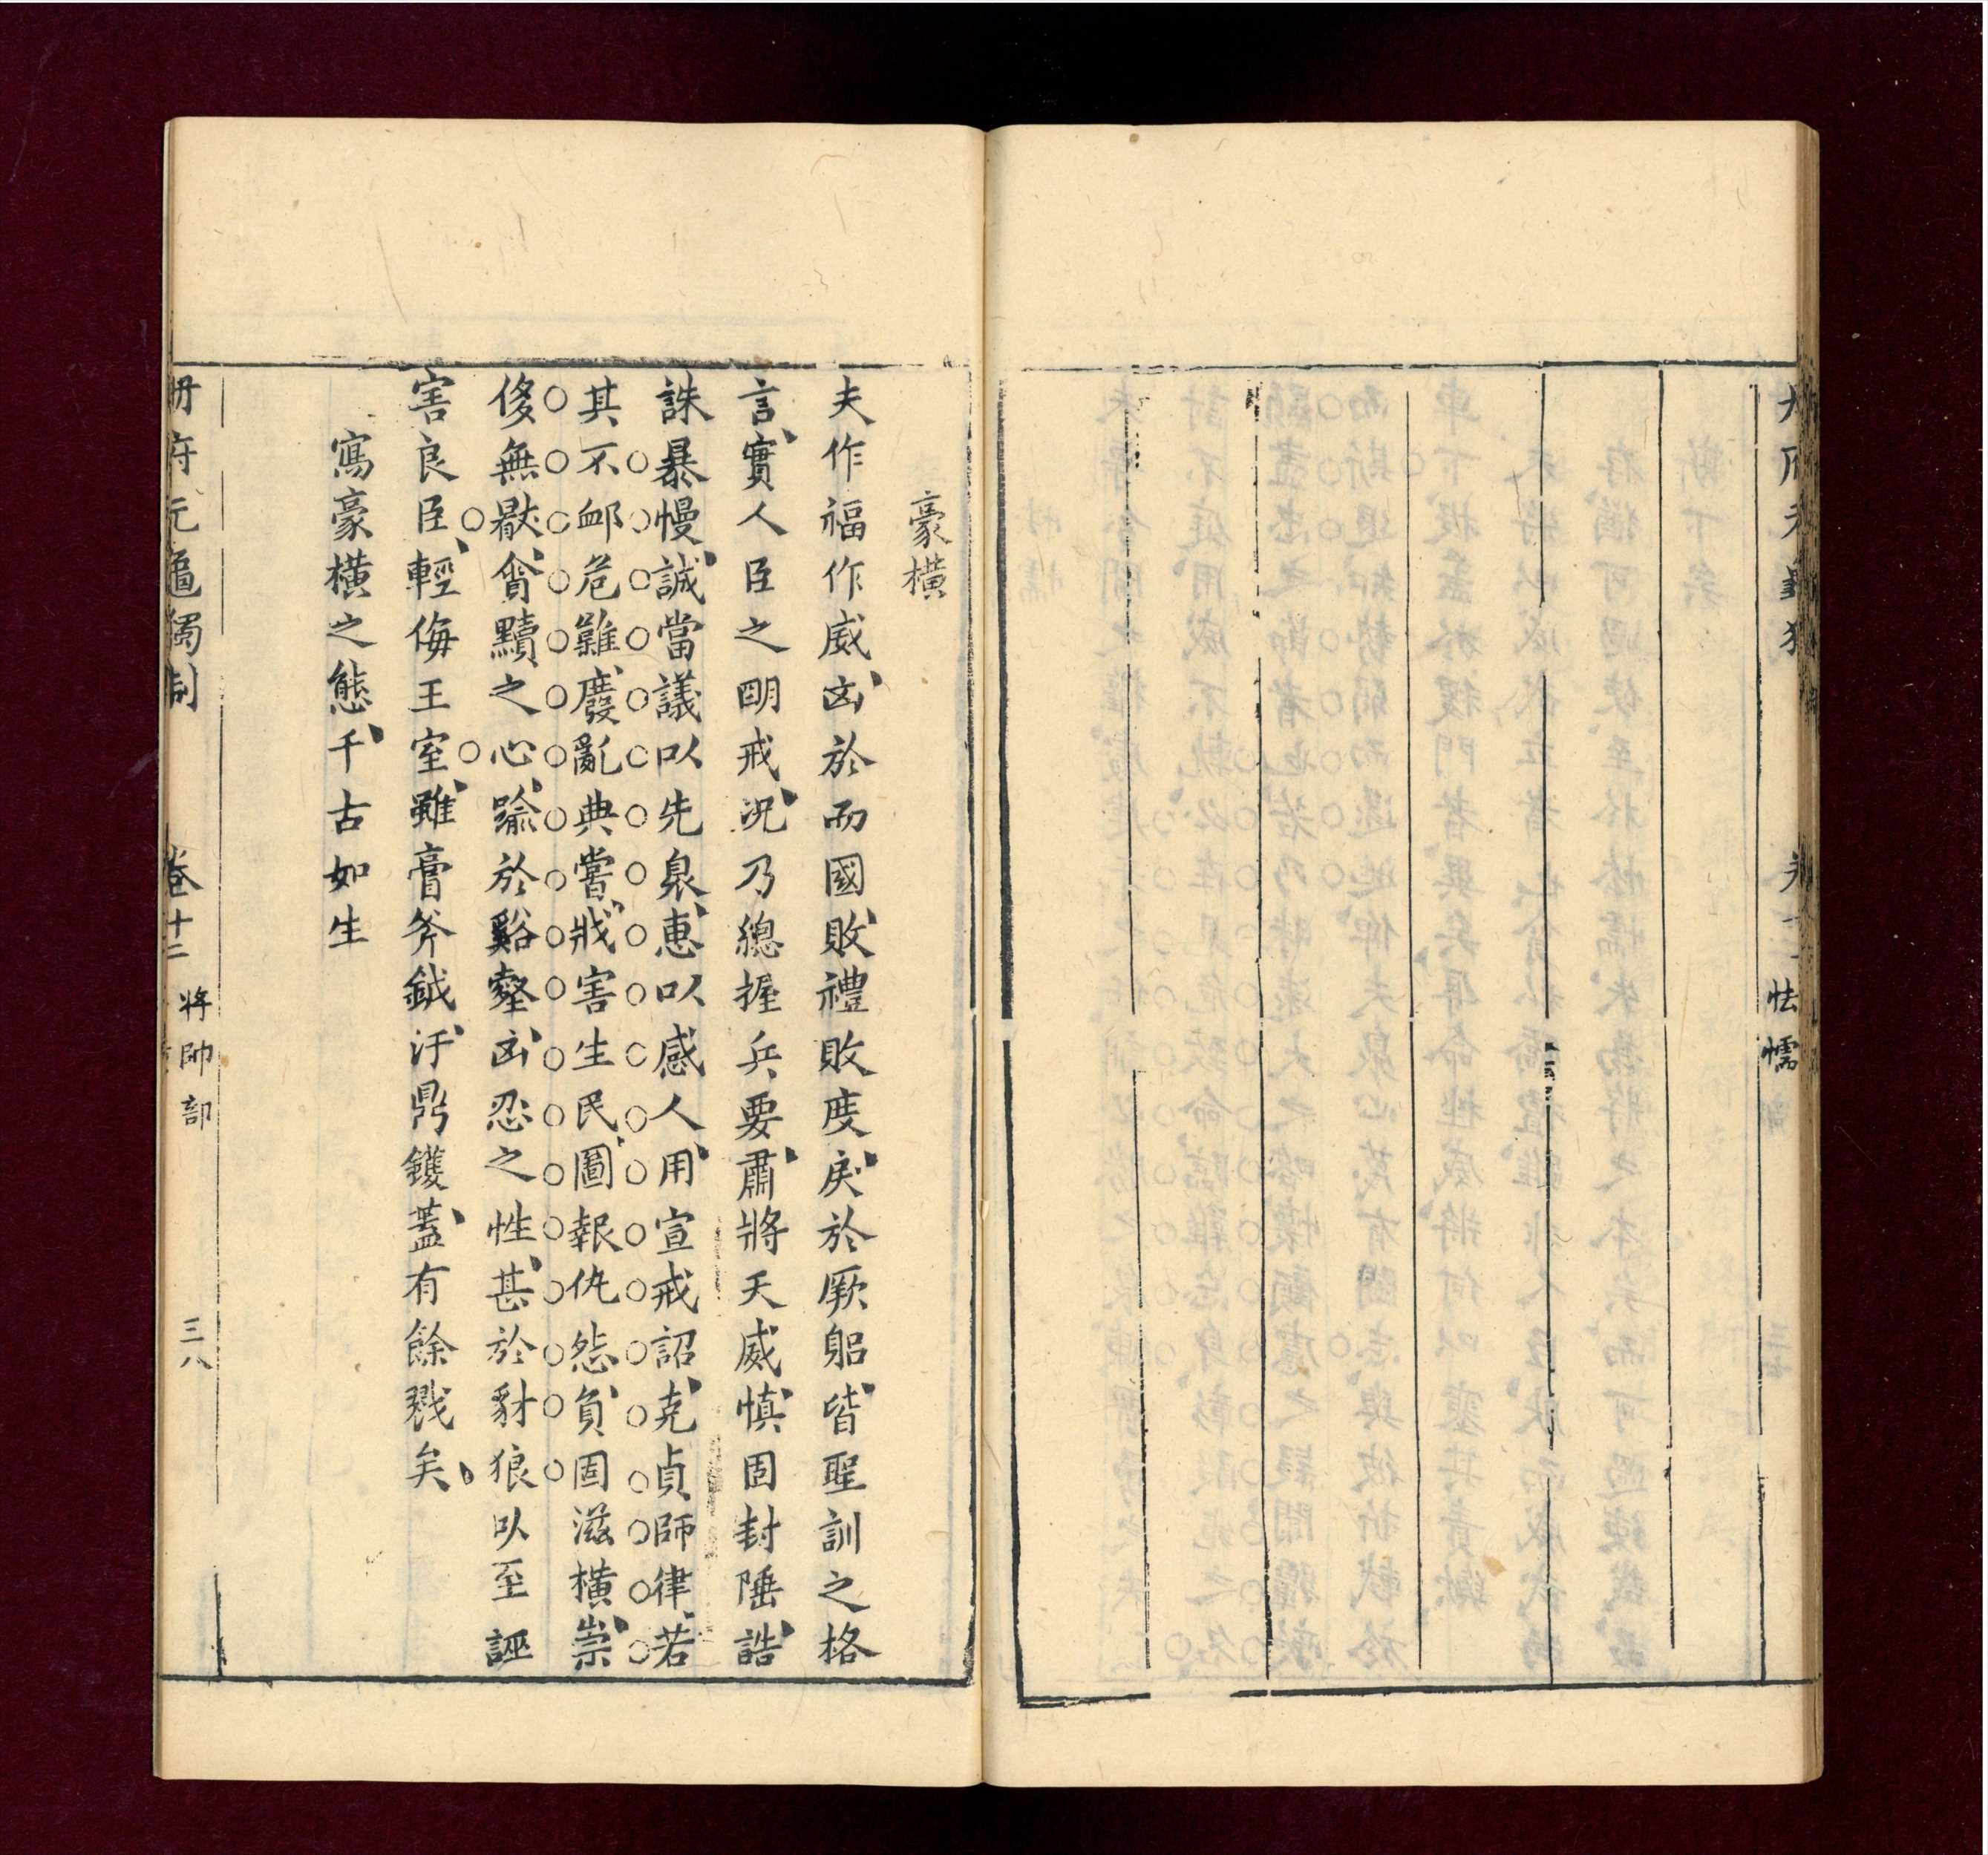 怯懦
豪橫
夫作福作威、凶於而國、敗禮敗度、戾於厥躬、皆聖訓之格
言、實人臣之明戒、況乃總握兵要、肅將天威、慎固封陲、誥
誅暴慢、誠當議以先衆、惠以感人、用宣戒詔、克貞師律、若
其不衈危難、廢亂典嘗、戕害生民、圖報仇怨、負固滋橫、崇
侈無厭、貪黷之心、踰於谿壑、凶忍之性、甚於豺狼以至誣
害良臣、輕侮王室、雖膏斧鉞、汙鼎鑊、蓋有餘戮矣、
寫豪橫之態、千古如生
冊府元龜獨制 卷十二 將帥部 三八